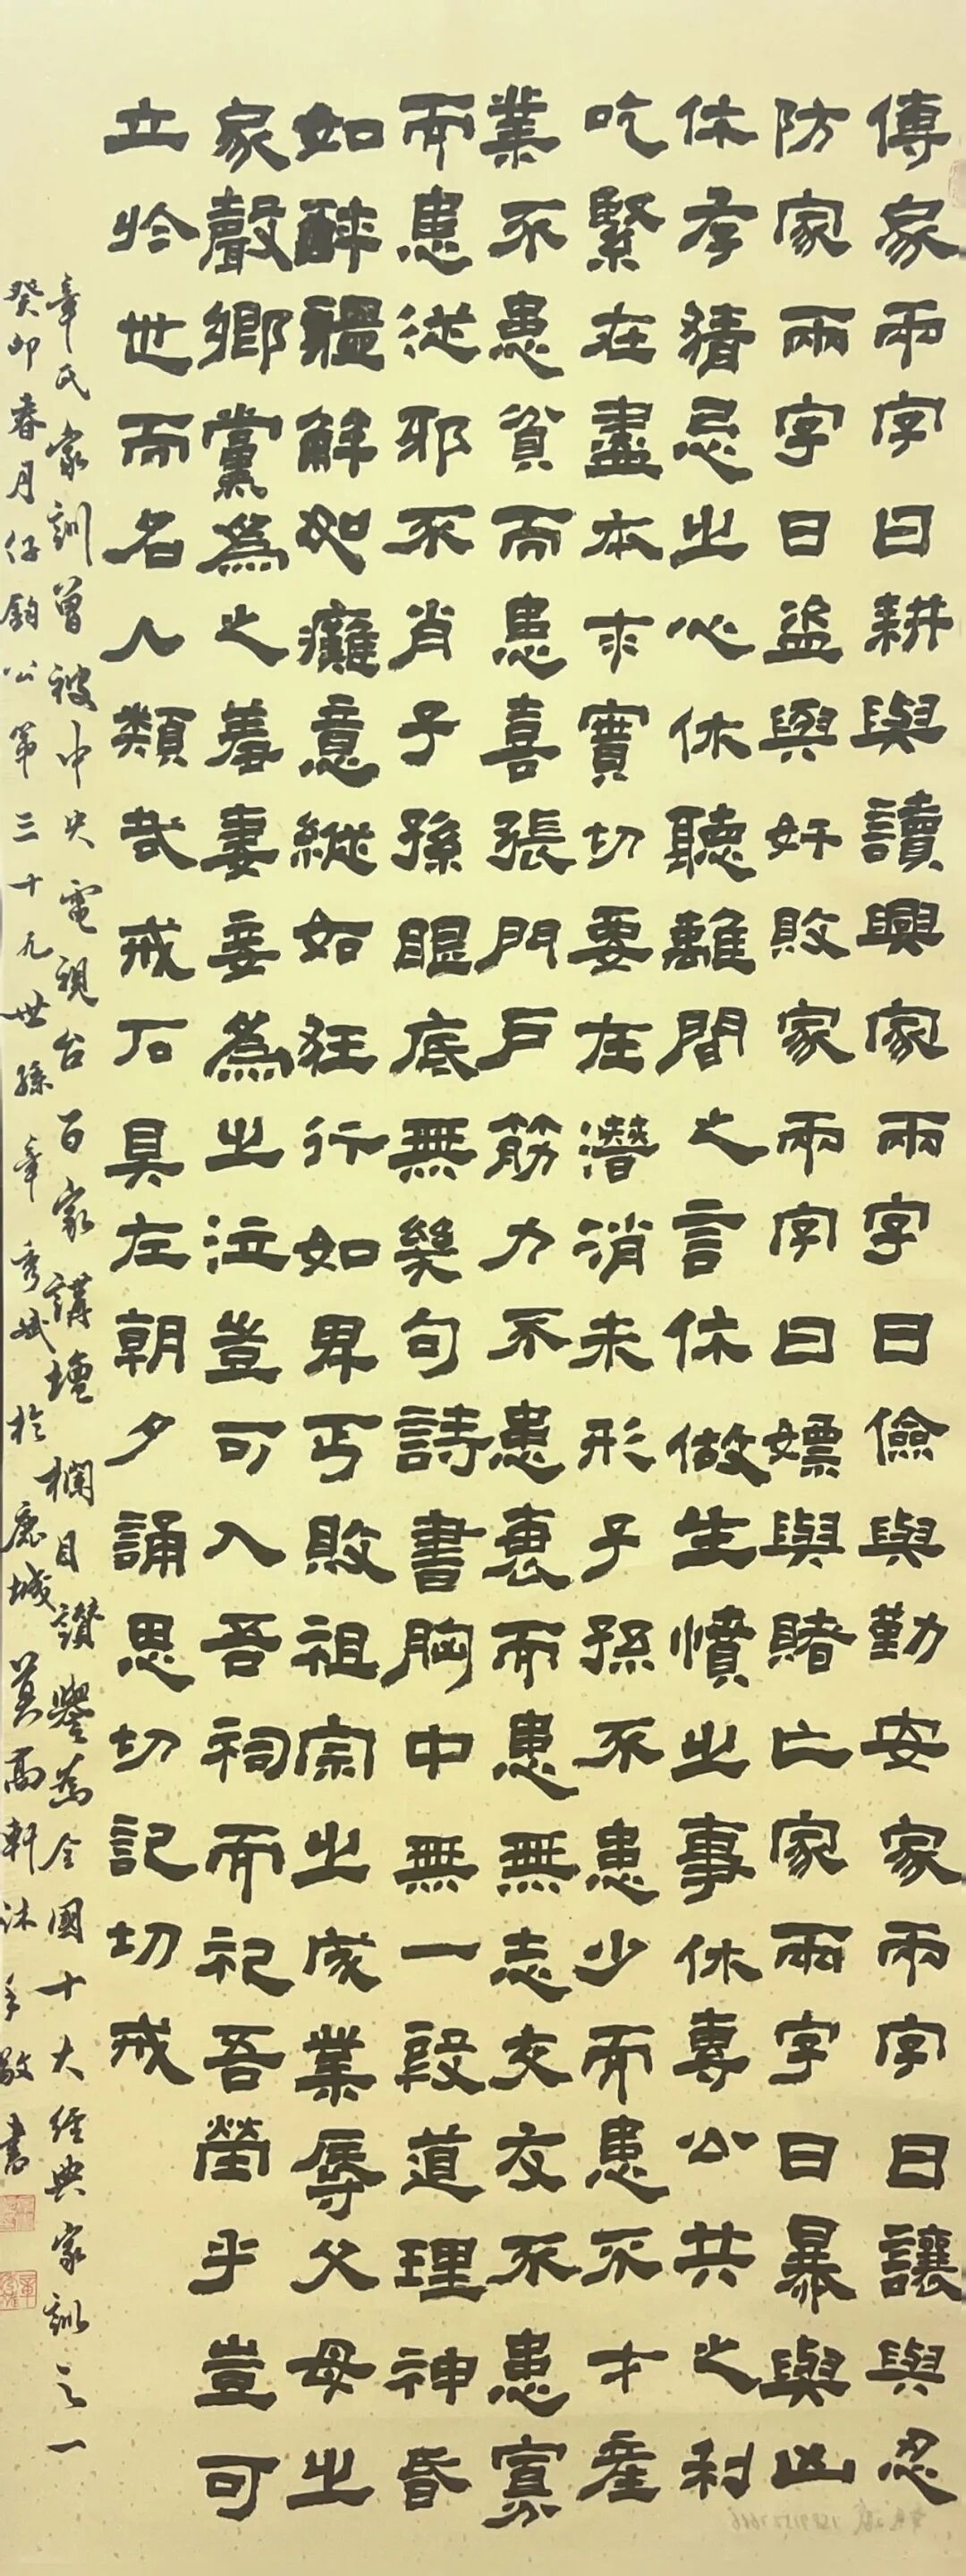 傳家兩字曰耕與讀興家兩字曰儉與勤安家兩字曰讓與忍
防家兩字曰盜與奸敗家兩字曰嫖與賭亡家兩字曰暴與凶
休存猜忌之心休聽離間之言休做生憤之事休專公共之利
吃緊在盡本求實切要在潛消未形子孫不患少而患不才產
業不患貧而患喜張門戶筋力不患衰而患無志交友不患寡
而患從邪不肖子孫眼底無幾句詩書胸中無一段道理神昏
如醉體解如癱意縱如狂行如卑丐敗祖宗之成業辱父母之
家聲鄉黨為之羞妻妾為之泣豈可入吾祠而祀吾塋乎豈可
立於世而名人類哉戒石具左朝夕誦思切記切戒
章氏家訓曾被中央電視台百家講壇欄目讚譽為全國十大經典家訓之一
癸卯春月仔鈞公第三十九世孫章秀斌於鹿城莫高軒沐手敬書